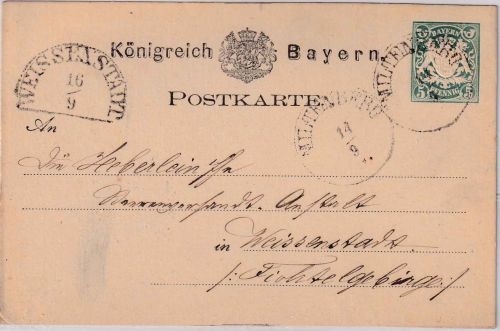 Königreich Bayern.
BAYERN
5 PFENNIG 5
MILTENBERG
WEISSENSTADT
16
9
POSTKARTE
MILTENBERG
14
9
An
Die Heberlein'sche
Anstalt
in Weissenstadt.
/: Fichtelgebirg :/